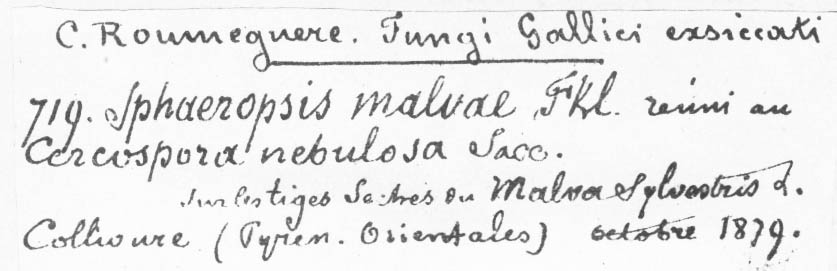 C. Roumeguere. Fungi Gallici exsiccati
719. Sphaeropsis malvae Fkl. réuni au
Cercospora nebulosa Sacc.
Sur les tiges du Malva Sylvestris L.
Collioure (Pyren. Orientales) octobre 1879.